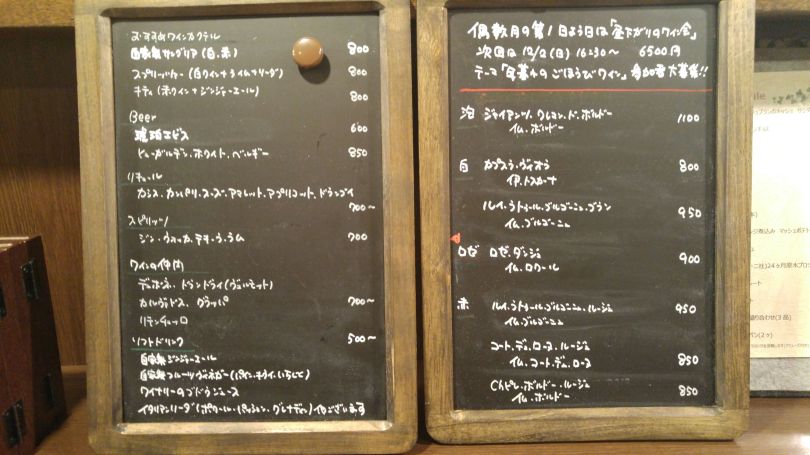 おすすめワインカクテル
自家製サングリア(白.赤) 800
スプリッツァー(白ワイン+ライム+ソーダ) 800
キティ(赤ワイン+ジンジャーエール) 800
Beer
琥珀エビス 600
ヒューガルデン.ホワイト.ベルギー 850
リキュール
カシス.カンパリ.スーズ.アマレット.アプリコット.ドランブイ
700～
スピリッツ
ジン.ウォッカ.テキーラ.ラム 700
ワインの仲間
デュボネ.ドランドライ(ヴェルモット)
カルヴァドス グラッパ 700～
リモンチェッロ
ソフトドリンク 500～
自家製ジンジャーエール
自家製フルーツビネガー(パイン.キウイ.いちじく)
ワイナリーのブドウジュース
イタリアンソーダ(
グレナディン)もございます
偶数月の第1日よう日は「昼下がりのワイン会」
次回は12/2(日) 16:30～ 6500円
テーマ「年暮れのごほうびワイン」参加者大募集!!
泡 ジャイアンツ.クレマン.ド.ボルドー 1100
仏.ボルドー
白 カプスラ.ヴィオラ 800
伊.トスカーナ
ルイ.ラトゥール.ブルゴーニュ.ブラン 950
仏.ブルゴーニュ
ロゼ ロゼ.ダンジュ 900
仏.ロワール
赤 ルイ.ラトゥール.ブルゴーニュ.ルージュ 950
仏.ブルゴーニュ
コート.デュ.ローヌ.ルージュ 850
仏.コート.デュ.ローヌ
ボルドー.ルージュ 850
仏.ボルドー